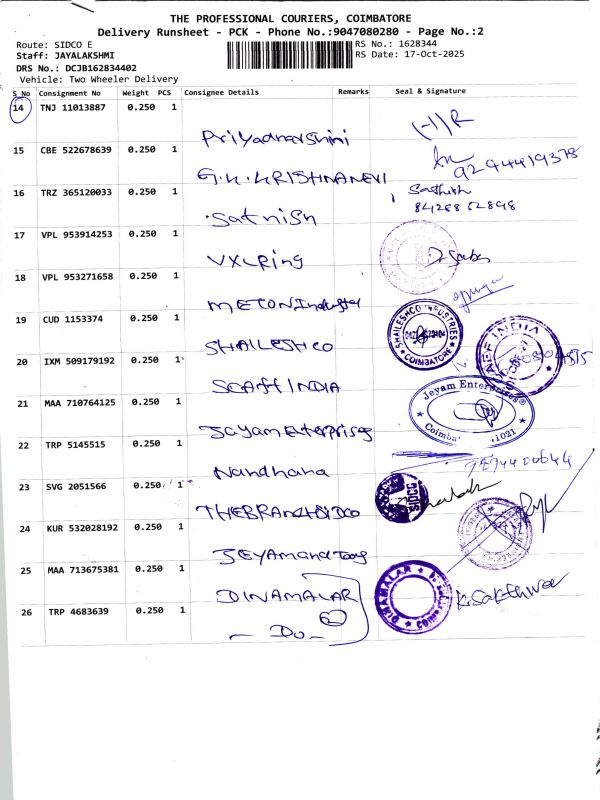 THE PROFESSIONAL COURIERS, COIMBATORE
Delivery Runsheet - PCK - Phone No.:9047080280 - Page No.:2
Route: SIDCO E
RS No.: 1628344
Staff: JAYALAKSHMI
RS Date: 17-Oct-2025
DRS No.: DCJB162834402
Vehicle: Two Wheeler Delivery
S No Consignment No Weight PCS Consignee Details Remarks Seal & Signature
14 TNJ 11013887 0.250 1 Priyadharshini
15 CBE 522678639 0.250 1 G.K.KRISHNAVENI
16 TRZ 365120033 0.250 1 Sathish Sathish
17 VPL 953914253 0.250 1 VXLRing
18 VPL 953271658 0.250 1 METCON Industry
19 CUD 1153374 0.250 1 SHAILESHCO SHAILESHCO INDUSTRIES COIMBATORE
20 IXM 509179192 0.250 1 SCAFF INDIA
21 MAA 710764125 0.250 1 Jayam Enterprises Jeyam Enterprises
22 TRP 5145515 0.250 1 Nandhana
23 SVG 2051566 0.250 1 SIDCO
24 KUR 532028192 0.250 1
25 MAA 713675381 0.250 1 DINAMALAR DINAMALAR
26 TRP 4683639 0.250 1 - Do -